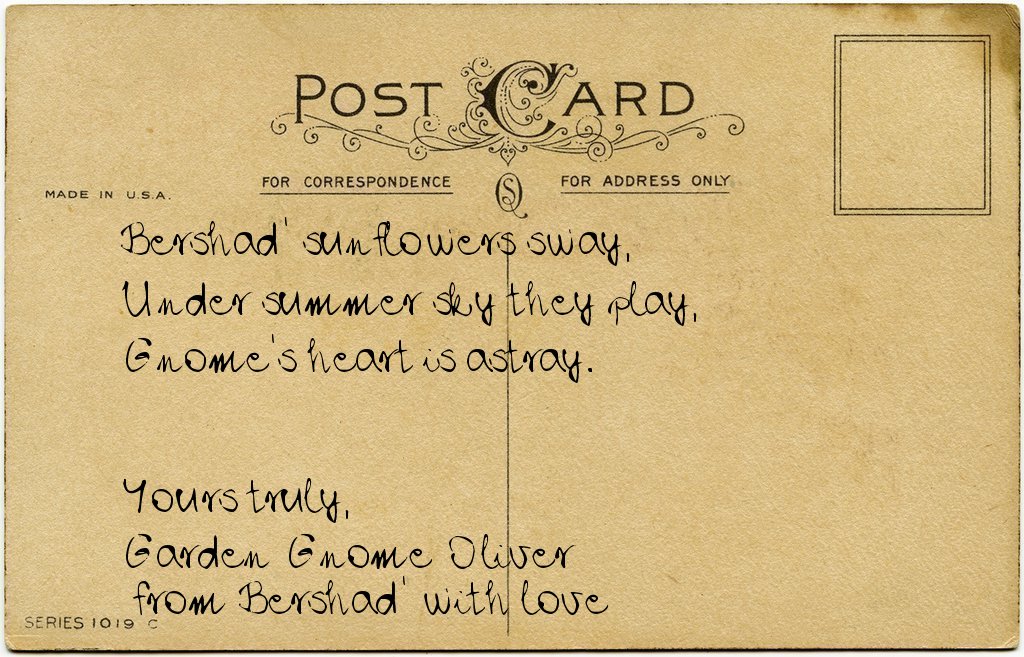 POST CARD
FOR CORRESPONDENCE
FOR ADDRESS ONLY
MADE IN U.S.A.
Bershad' sunflowers sway,
Under summer sky they play,
Gnome's heart is astray.
Yours truly,
Garden Gnome Oliver
from Bershad' with love
SERIES 1019 C